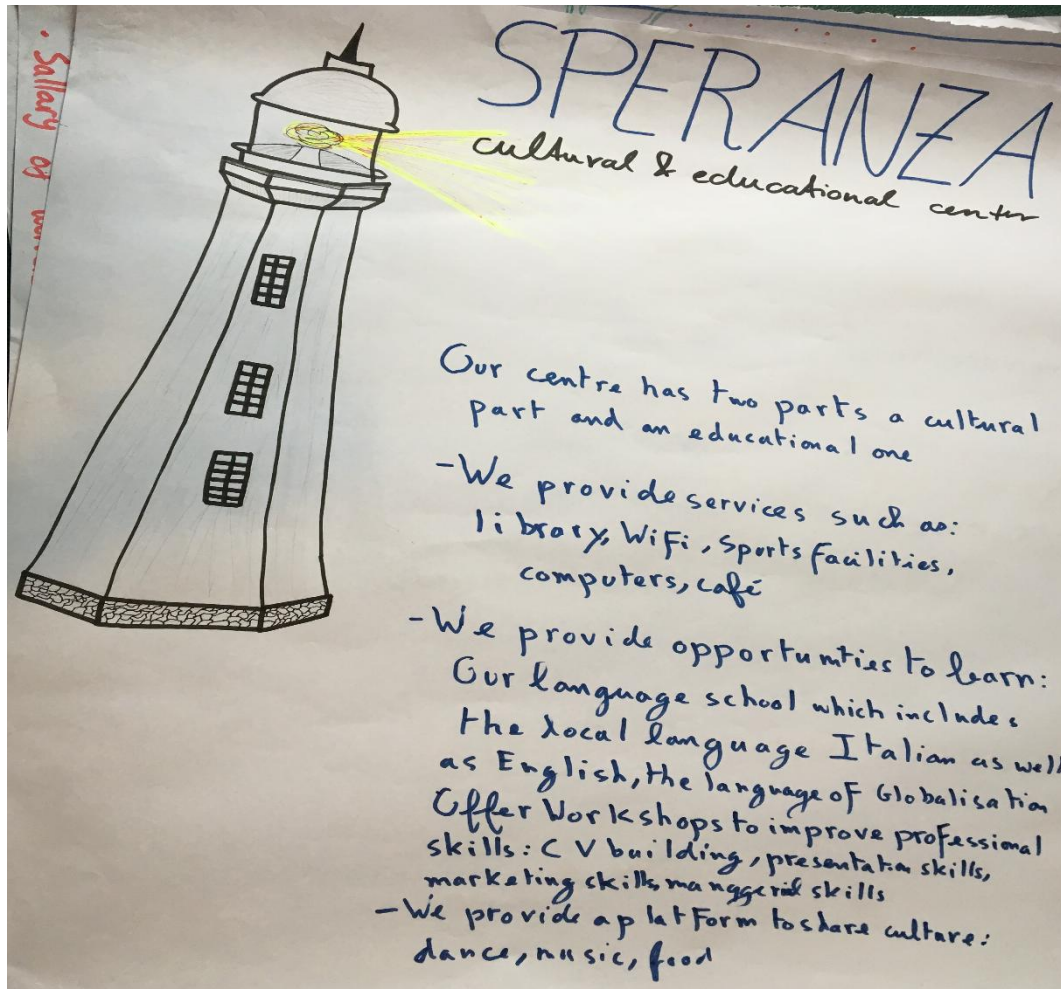 • Sallary of
SPERANZA
cultural & educational center
Our centre has two parts a cultural
part and an educational one
- We provide services such as:
library, WiFi, Sports facilities,
computers, café
- We provide opportunities to learn:
Our language school which includes
the local language Italian as well
as English, the language of Globalisation
Offer Workshops to improve professional
skills: CV building, presentation skills,
marketing skills, managerial skills
- We provide a platform to share culture:
dance, music, food